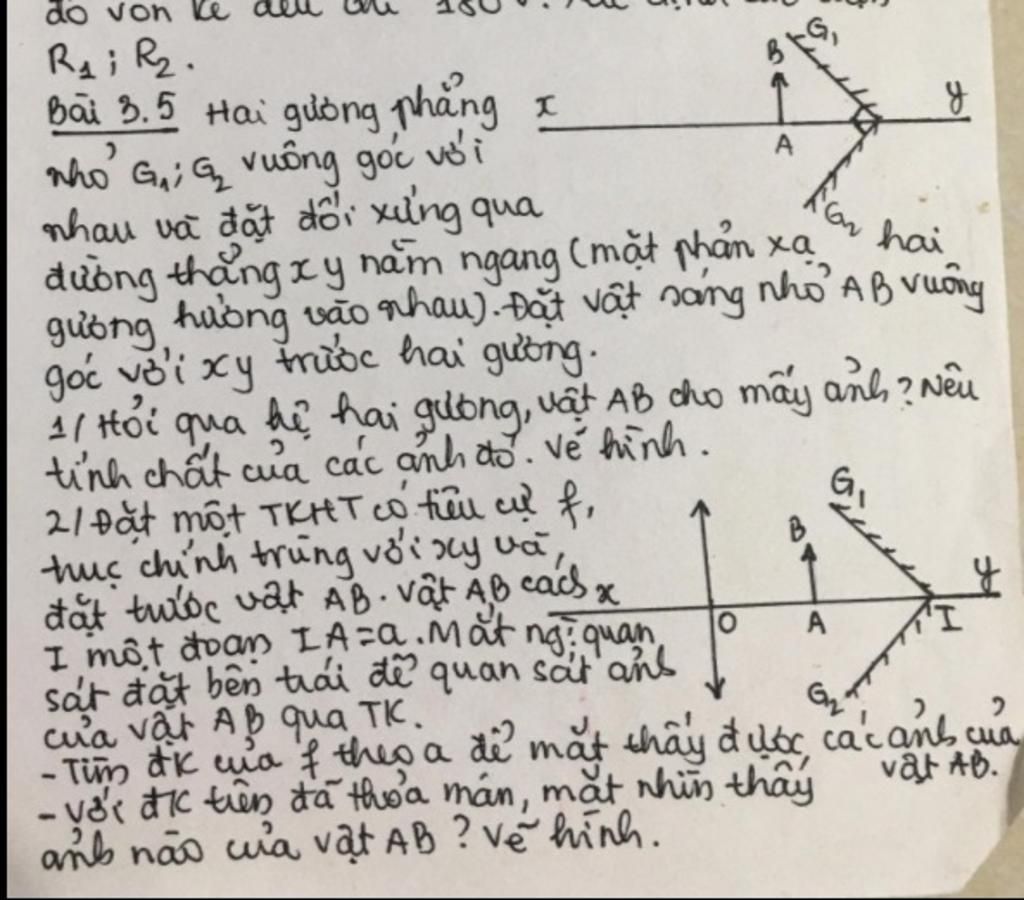 đo vôn kế đều chỉ 180V.
R1; R2.
Bài 3.5 Hai gương phẳng
nhỏ G1; G2 vuông góc với
nhau và đặt đối xứng qua
đường thẳng xy nằm ngang (mặt phản xạ hai
gương hướng vào nhau). Đặt vật sáng nhỏ AB vuông
góc với xy trước hai gương.
1/ Hỏi qua hệ hai gương, vật AB cho mấy ảnh? Nêu
tính chất của các ảnh đó. Vẽ hình.
2/ Đặt một TKHT có tiêu cự f,
trục chính trùng với xy và,
đặt trước vật AB. Vật AB cách
I một đoạn IA=a. Mắt ng` quan
sát đặt bên trái để quan sát ảnh
của vật AB qua TK.
- Tìm đk của f theo a để mắt thấy được các ảnh của
vật AB.
- Với đk trên đã thỏa mãn, mắt nhìn thấy
ảnh nào của vật AB? Vẽ hình.
G1
B
x
y
A
G2
G1
B
x
y
O
A
I
G2